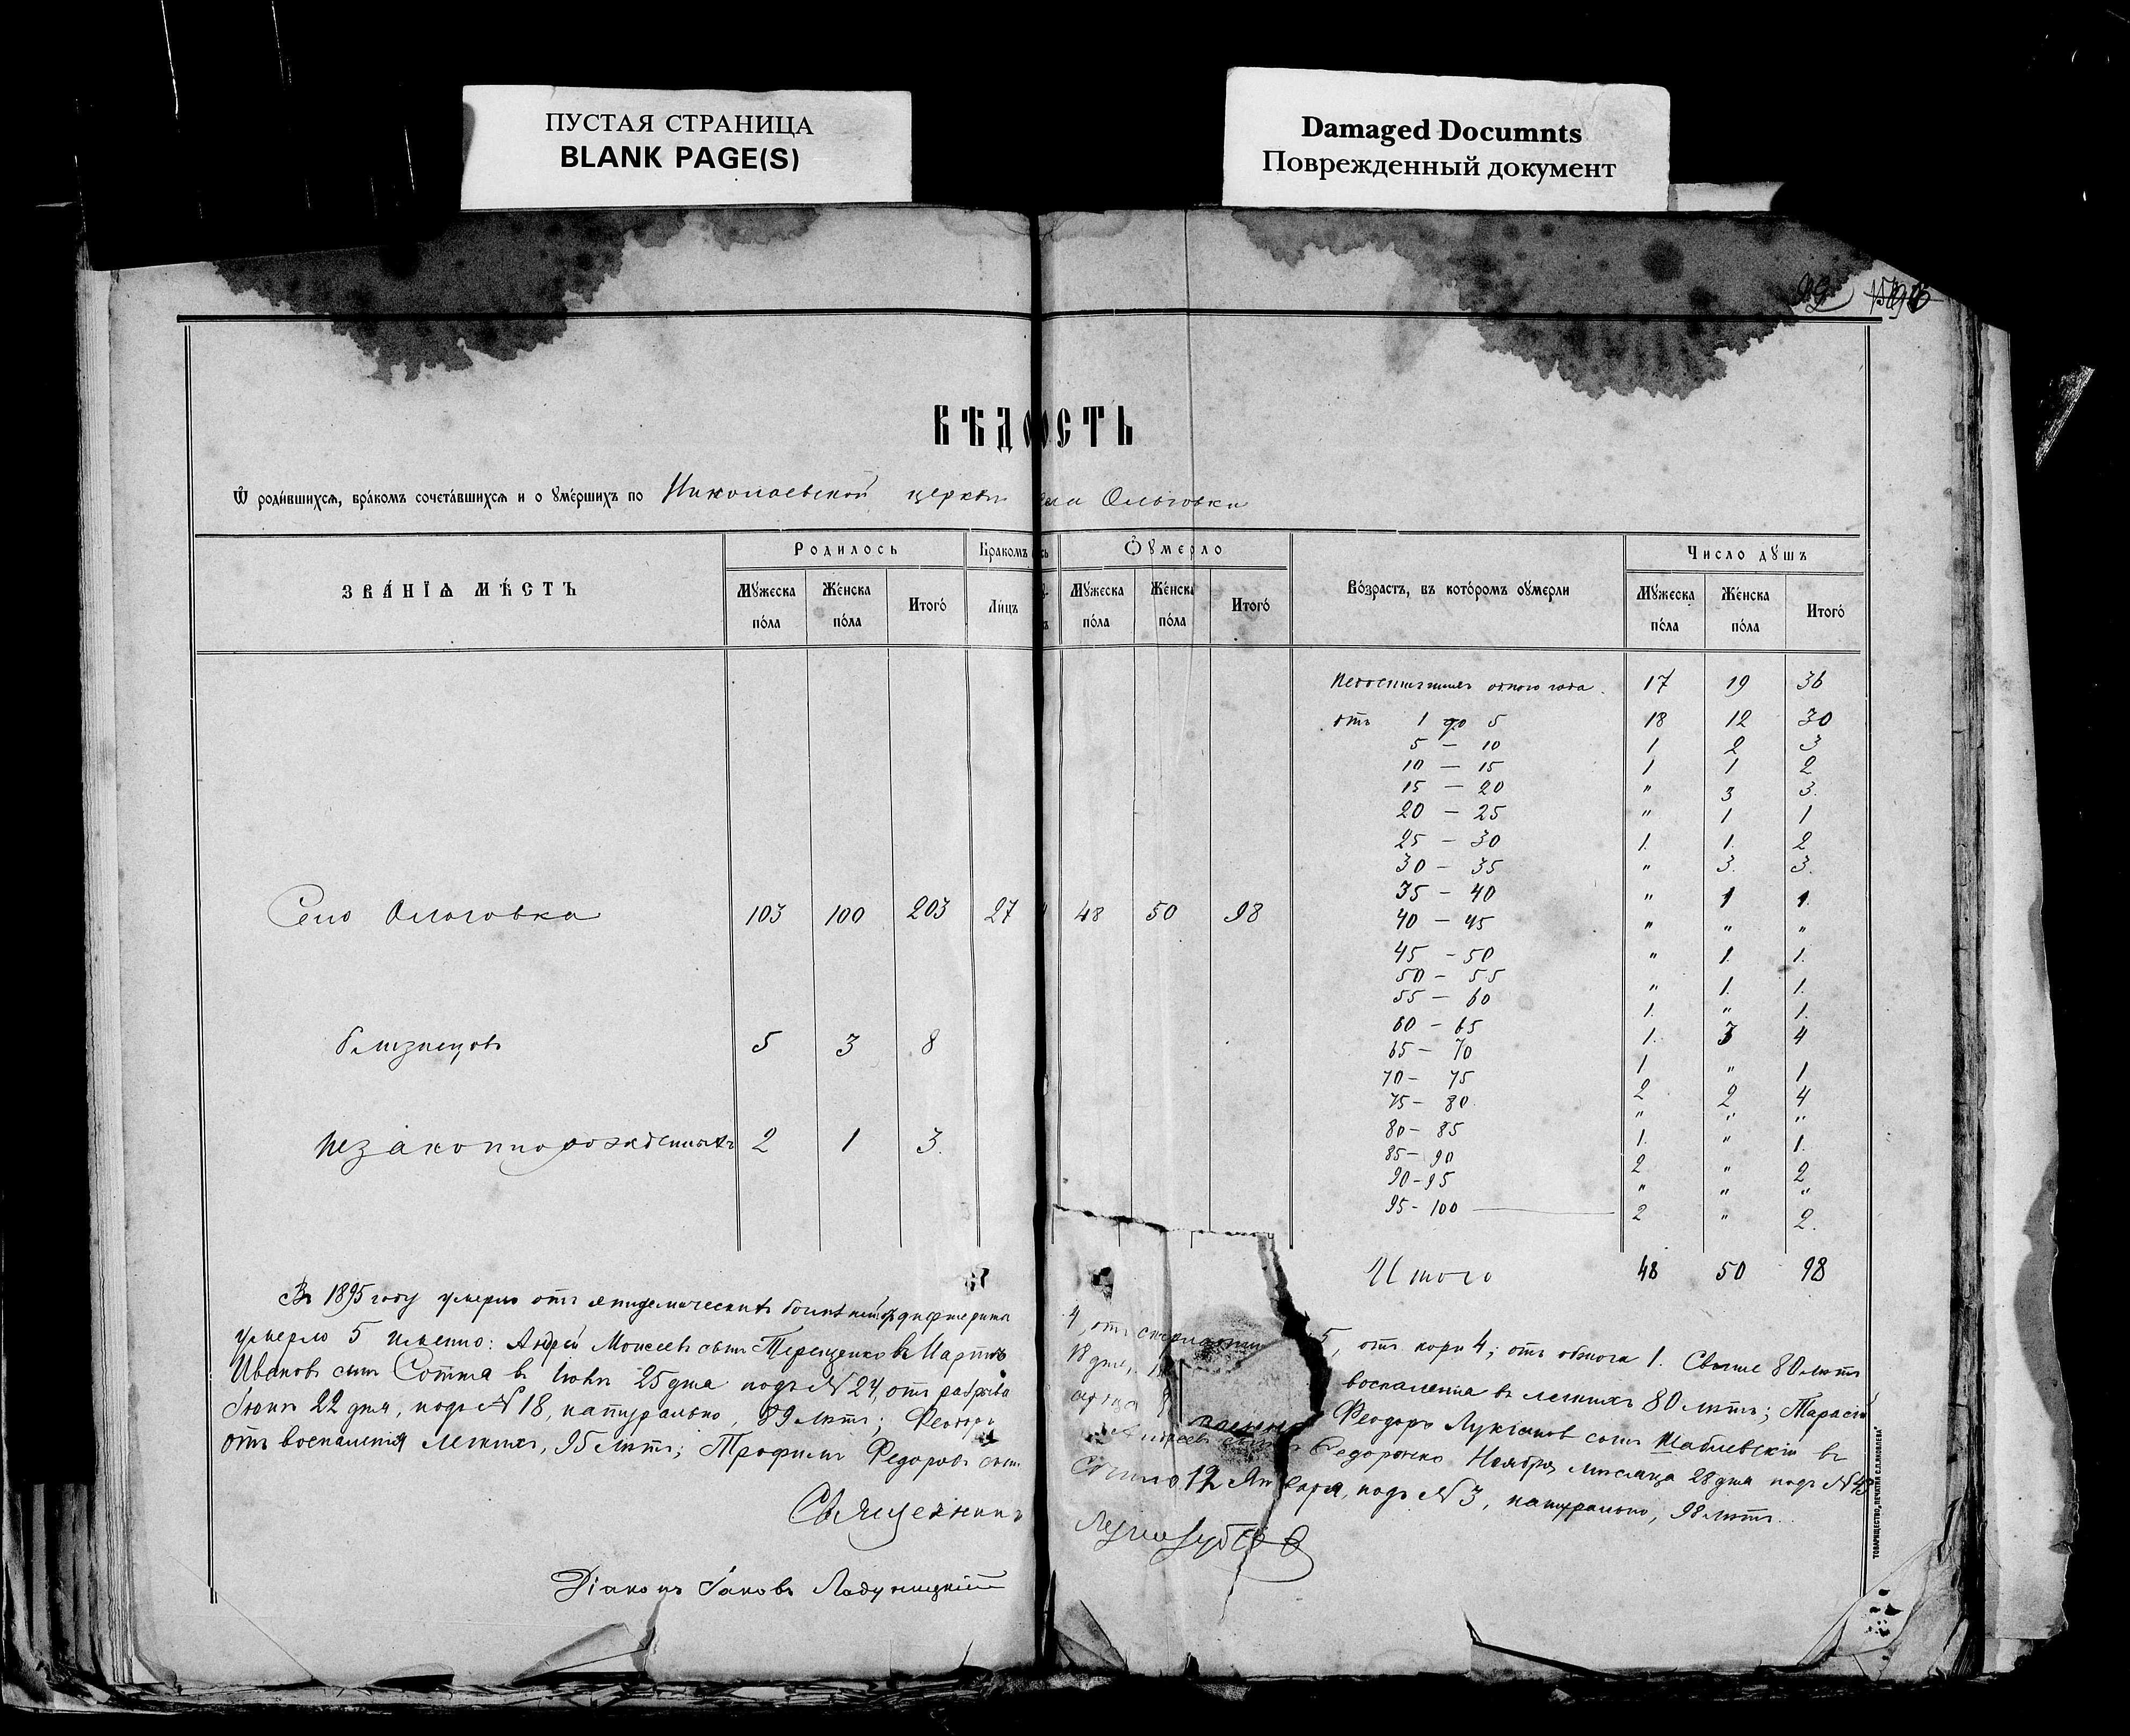 ПУСТАЯ СТРАНИЦА
BLANK PAGE(S)
Damaged Documnts
Поврежденный документ
ВѢДО ОСТЬ
Ѿ роди́вшихсѧ, бра́комъ сочета́вшихсѧ и о ᲂуме́ршихъ по Николаевской церкви села Ольговки
ЗВА́НІѦ МѢ́СТЪ Родилось Бракомъ Оумерло Во́зрастъ, въ кото́ромъ ᲂумерли Число душъ
Мꙋ́жеска по́ла Же́нска по́ла Итого́ Ли́цъ Мꙋ́жеска по́ла Же́нска по́ла Итого́ Мꙋ́жеска по́ла Же́нска по́ла Итого́
Недостигшихъ одного года. 17 19 36
отъ 1 до 5 18 12 30
5 — 10 1 2 3
10 — 15 1 1 2
15 — 20 " 3 3.
20 — 25 " 1 1
25 — 30 1. 1. 2
30 — 35 " 3. 3.
35 — 40 " 1 1.
Село Ольговка 103 100 203 27 48 50 98
40 — 45 " " "
45 — 50 " 1. 1.
50 — 55 " 1. 1.
55 — 60 1. " 1.
60 — 65 1. 3 4
Близнецовъ 5 3 8
65 — 70 1 " 1
70 — 75 2 2 4
75 — 80 " " "
80 — 85 1. " 1.
Незаконнорожденныхъ 2 1 3.
85 — 90 2 " 2
90 - 95 " " "
95 - 100 2 " 2.
Итого 48 50 98
Въ 1895 году умерло отъ эпидемическихъ болѣзней: отъ дифтерита 4, отъ скарлатины 5, отъ кори 4; отъ 1. Свыше 80 лѣтъ
умерло 5 именно: Андрей Моисеевъ сынъ Терещенко въ Мартѣ 18 дня, воспаленія въ легкихъ 80 лѣтъ; Тарасій
Ивановъ сынъ Сотта в 25 дня подъ № 24, отъ Феодоръ Лукіановъ сынъ Шаблевскій въ
Іюнѣ 22 дня, подъ № 18, натурально, 89 лѣтъ; Федоренко Ноября мѣсяца 28 дня подъ № 43
отъ воспаленія легкихъ, 95 лѣтъ; Трофимъ Федоровъ сынъ 12 Января, подъ № 3, натурально, 98 лѣтъ.
Священникъ
Діаконъ Іаковъ
ТОВАРИЩЕСТВО „ПЕЧАТНЯ С.П.ЯКОВЛЕВА“